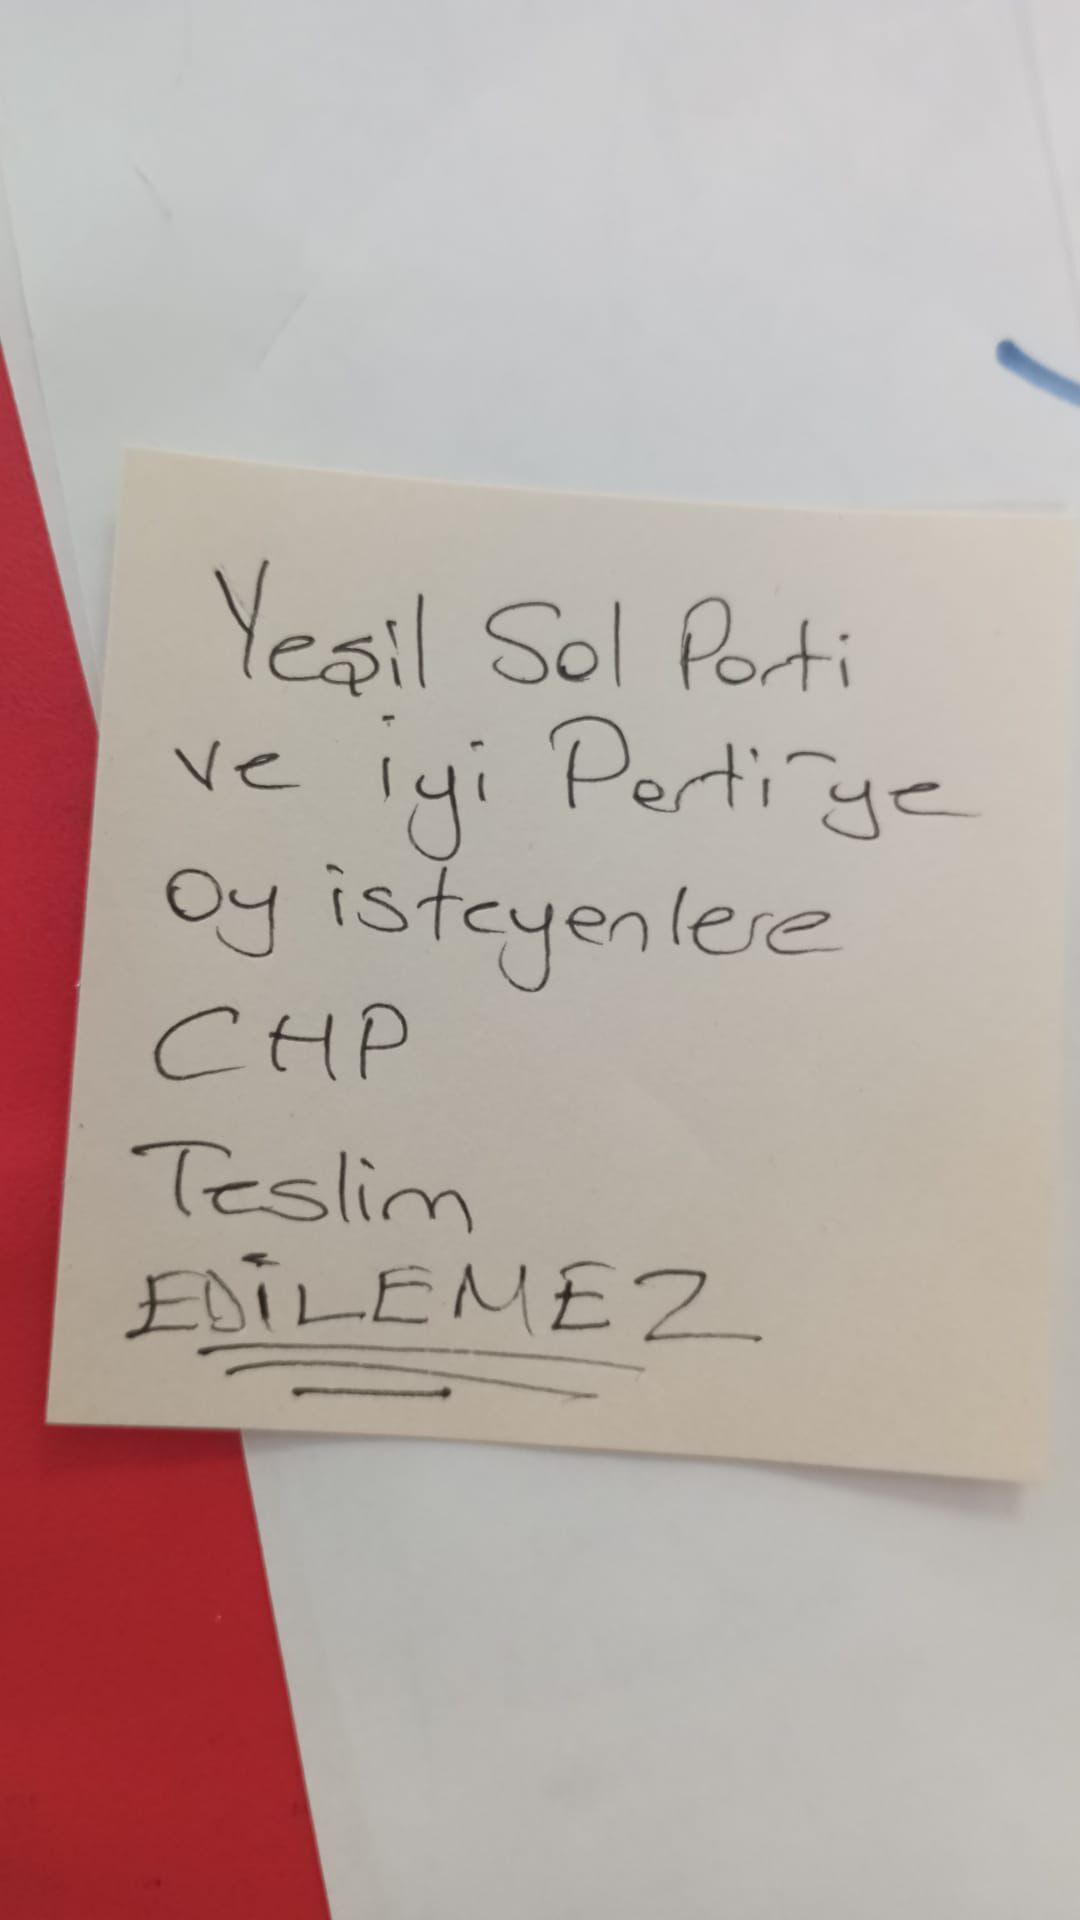 Yeşil Sol Parti
ve iyi Parti'ye
oy isteyenlere
CHP
Teslim
EDİLEMEZ